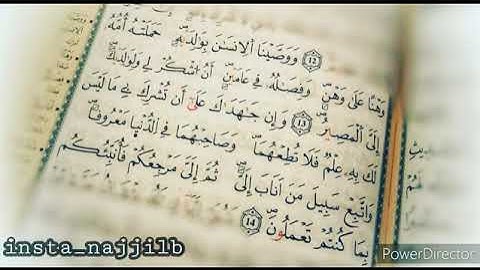 12 وَوَصَّيْنَا اَ۬لِانسَٰنَ بِوَٰلِدَيْهِ حَمَلَتْهُ أُمُّهُۥ
وَهْناً عَلَىٰ وَهْنٖ وَفِصَٰلُهُۥ فِے عَامَيْنِ أَنُ اُ۟شْكُرْ لِے وَلِوَٰلِدَيْكَ
إِلَيَّ اَ۬لْمَصِيرُ 13 وَإِن جَٰهَدَٰكَ عَلَىٰٓ أَن تُشْرِكَ بِے مَا لَيْسَ
لَكَ بِهِۦ عِلْمٞ فَلَا تُطِعْهُمَا وَصَاحِبْهُمَا فِے اِ۬لدُّنْيَا مَعْرُوفاً
وَاتَّبِعْ سَبِيلَ مَنْ أَنَابَ إِلَيَّ ثُمَّ إِلَيَّ مَرْجِعُكُمْ فَأُنَبِّئُكُم
بِمَا كُنتُمْ تَعْمَلُونَ 14
insta_najjilb
PowerDirector